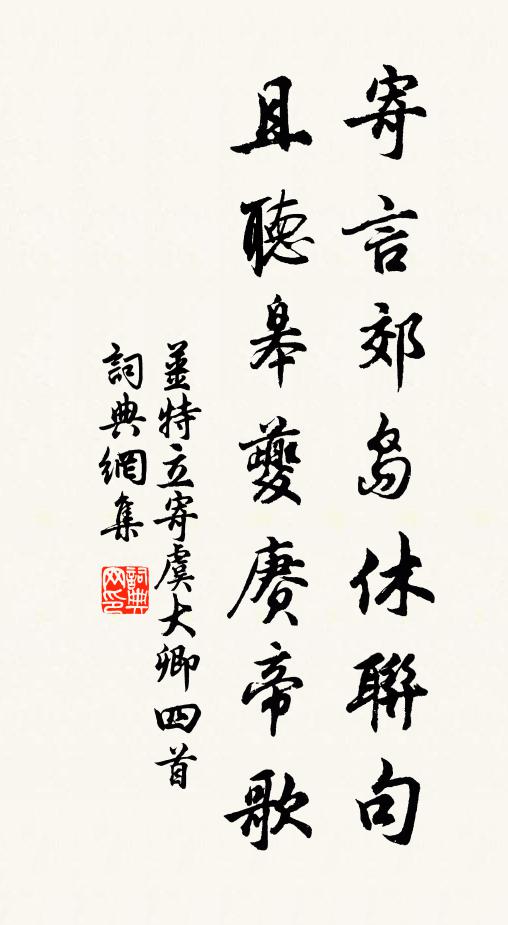 寄言郊島休聯句
且聽皋夔賡帝歌
姜特立寄虞大卿四首
詞典網集
詞典網印